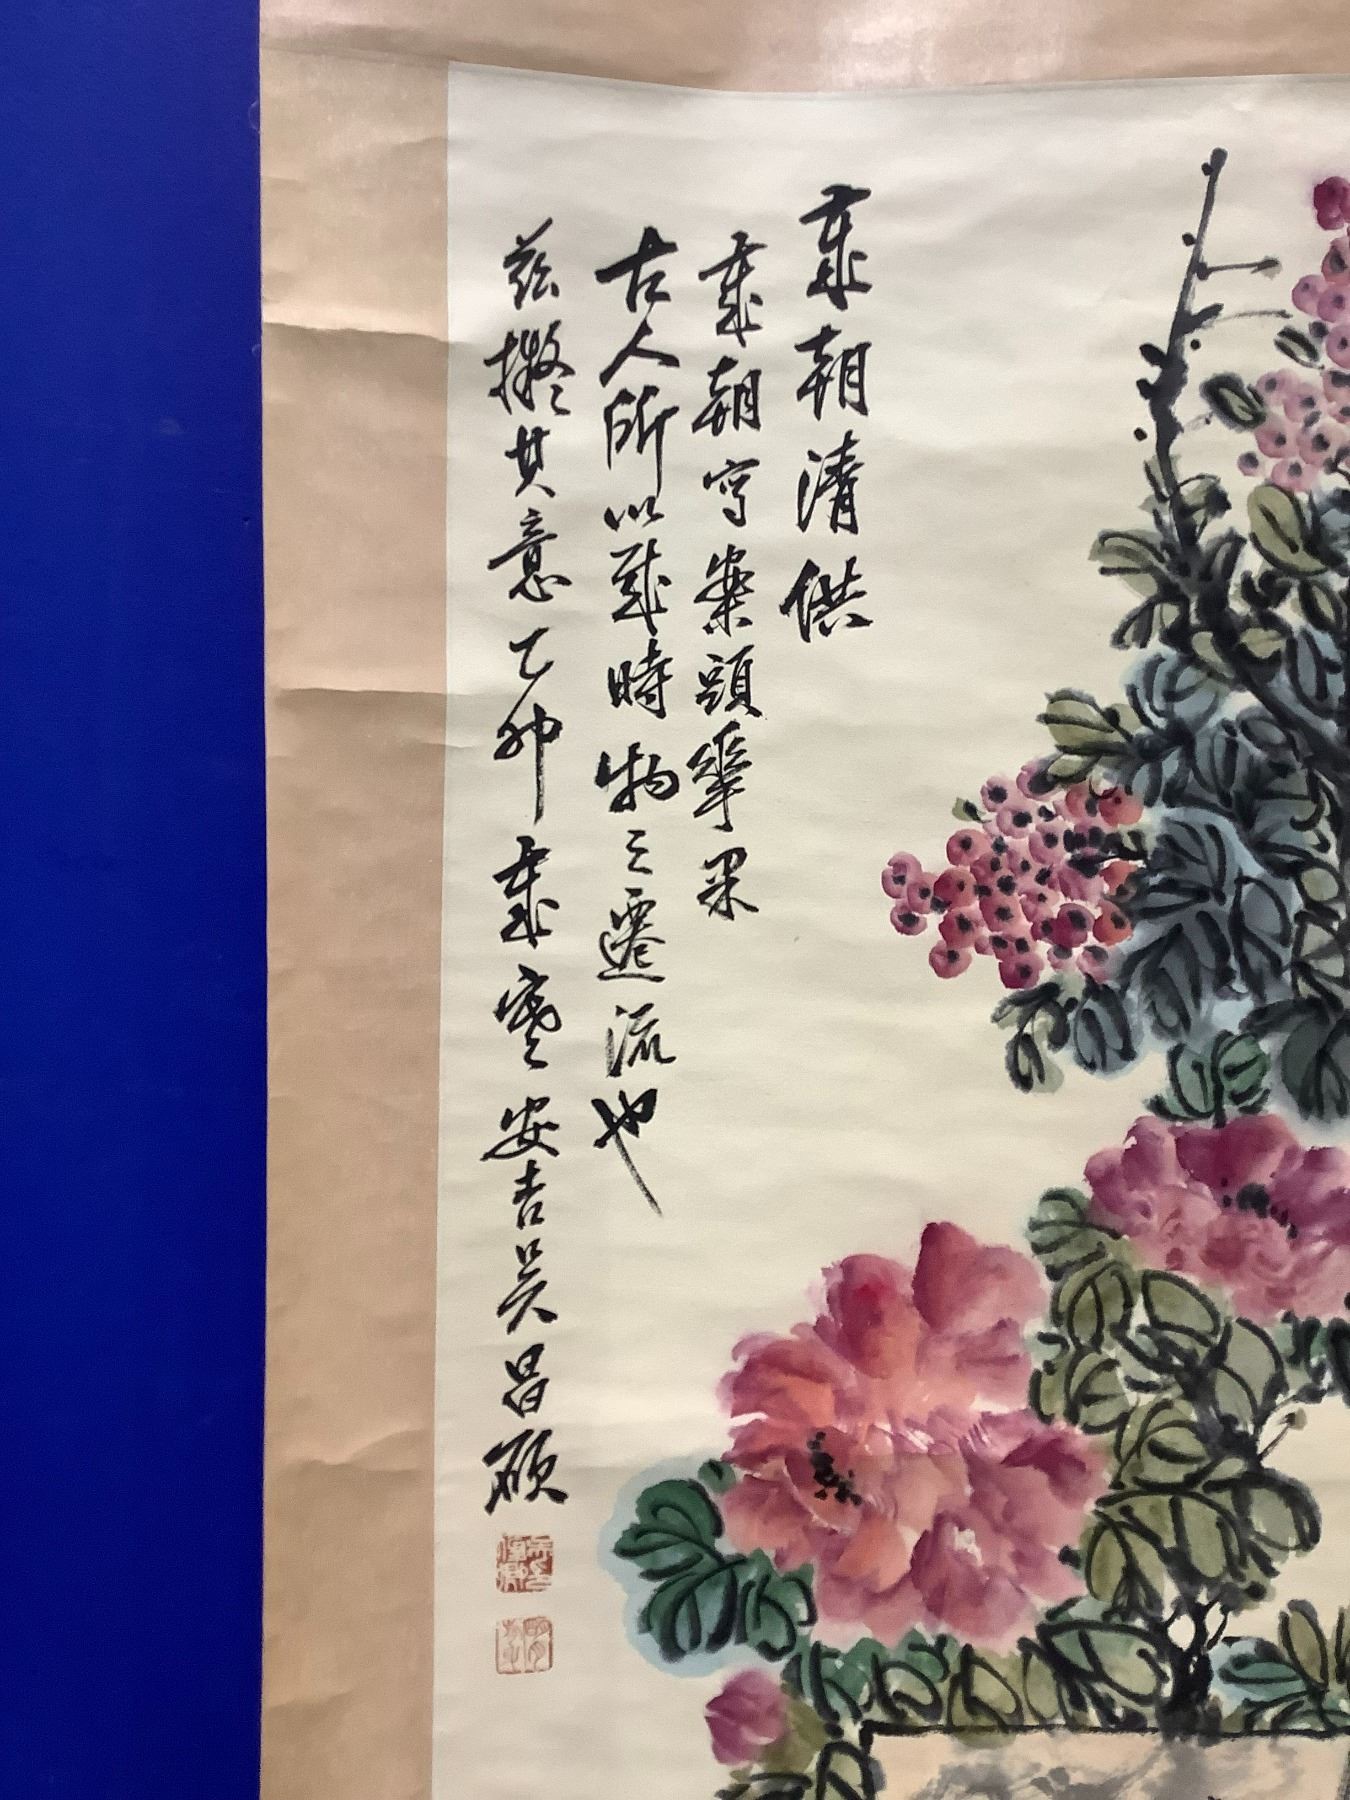 歲朝清供
歲朝寫案頭華果
古人所以感時物之遷流也
茲擬其意乙卯歲寒安吉吳昌碩